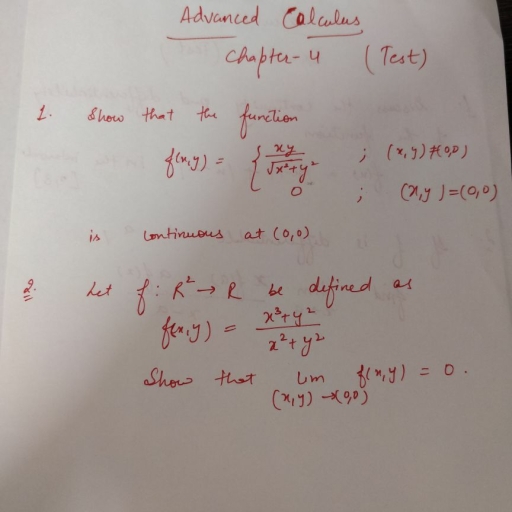 Advanced Calculus
Chapter-4 (Test)
1. Show that the function
f(x,y) = { xy/√x²+y² ; (x,y)≠(0,0)
0 ; (x,y)=(0,0)
is continuous at (0,0)
2. Let f: R² → R be defined as
f(x,y) = x³+y²/x²+y²
Show that lim f(x,y) = 0.
(x,y)→(0,0)